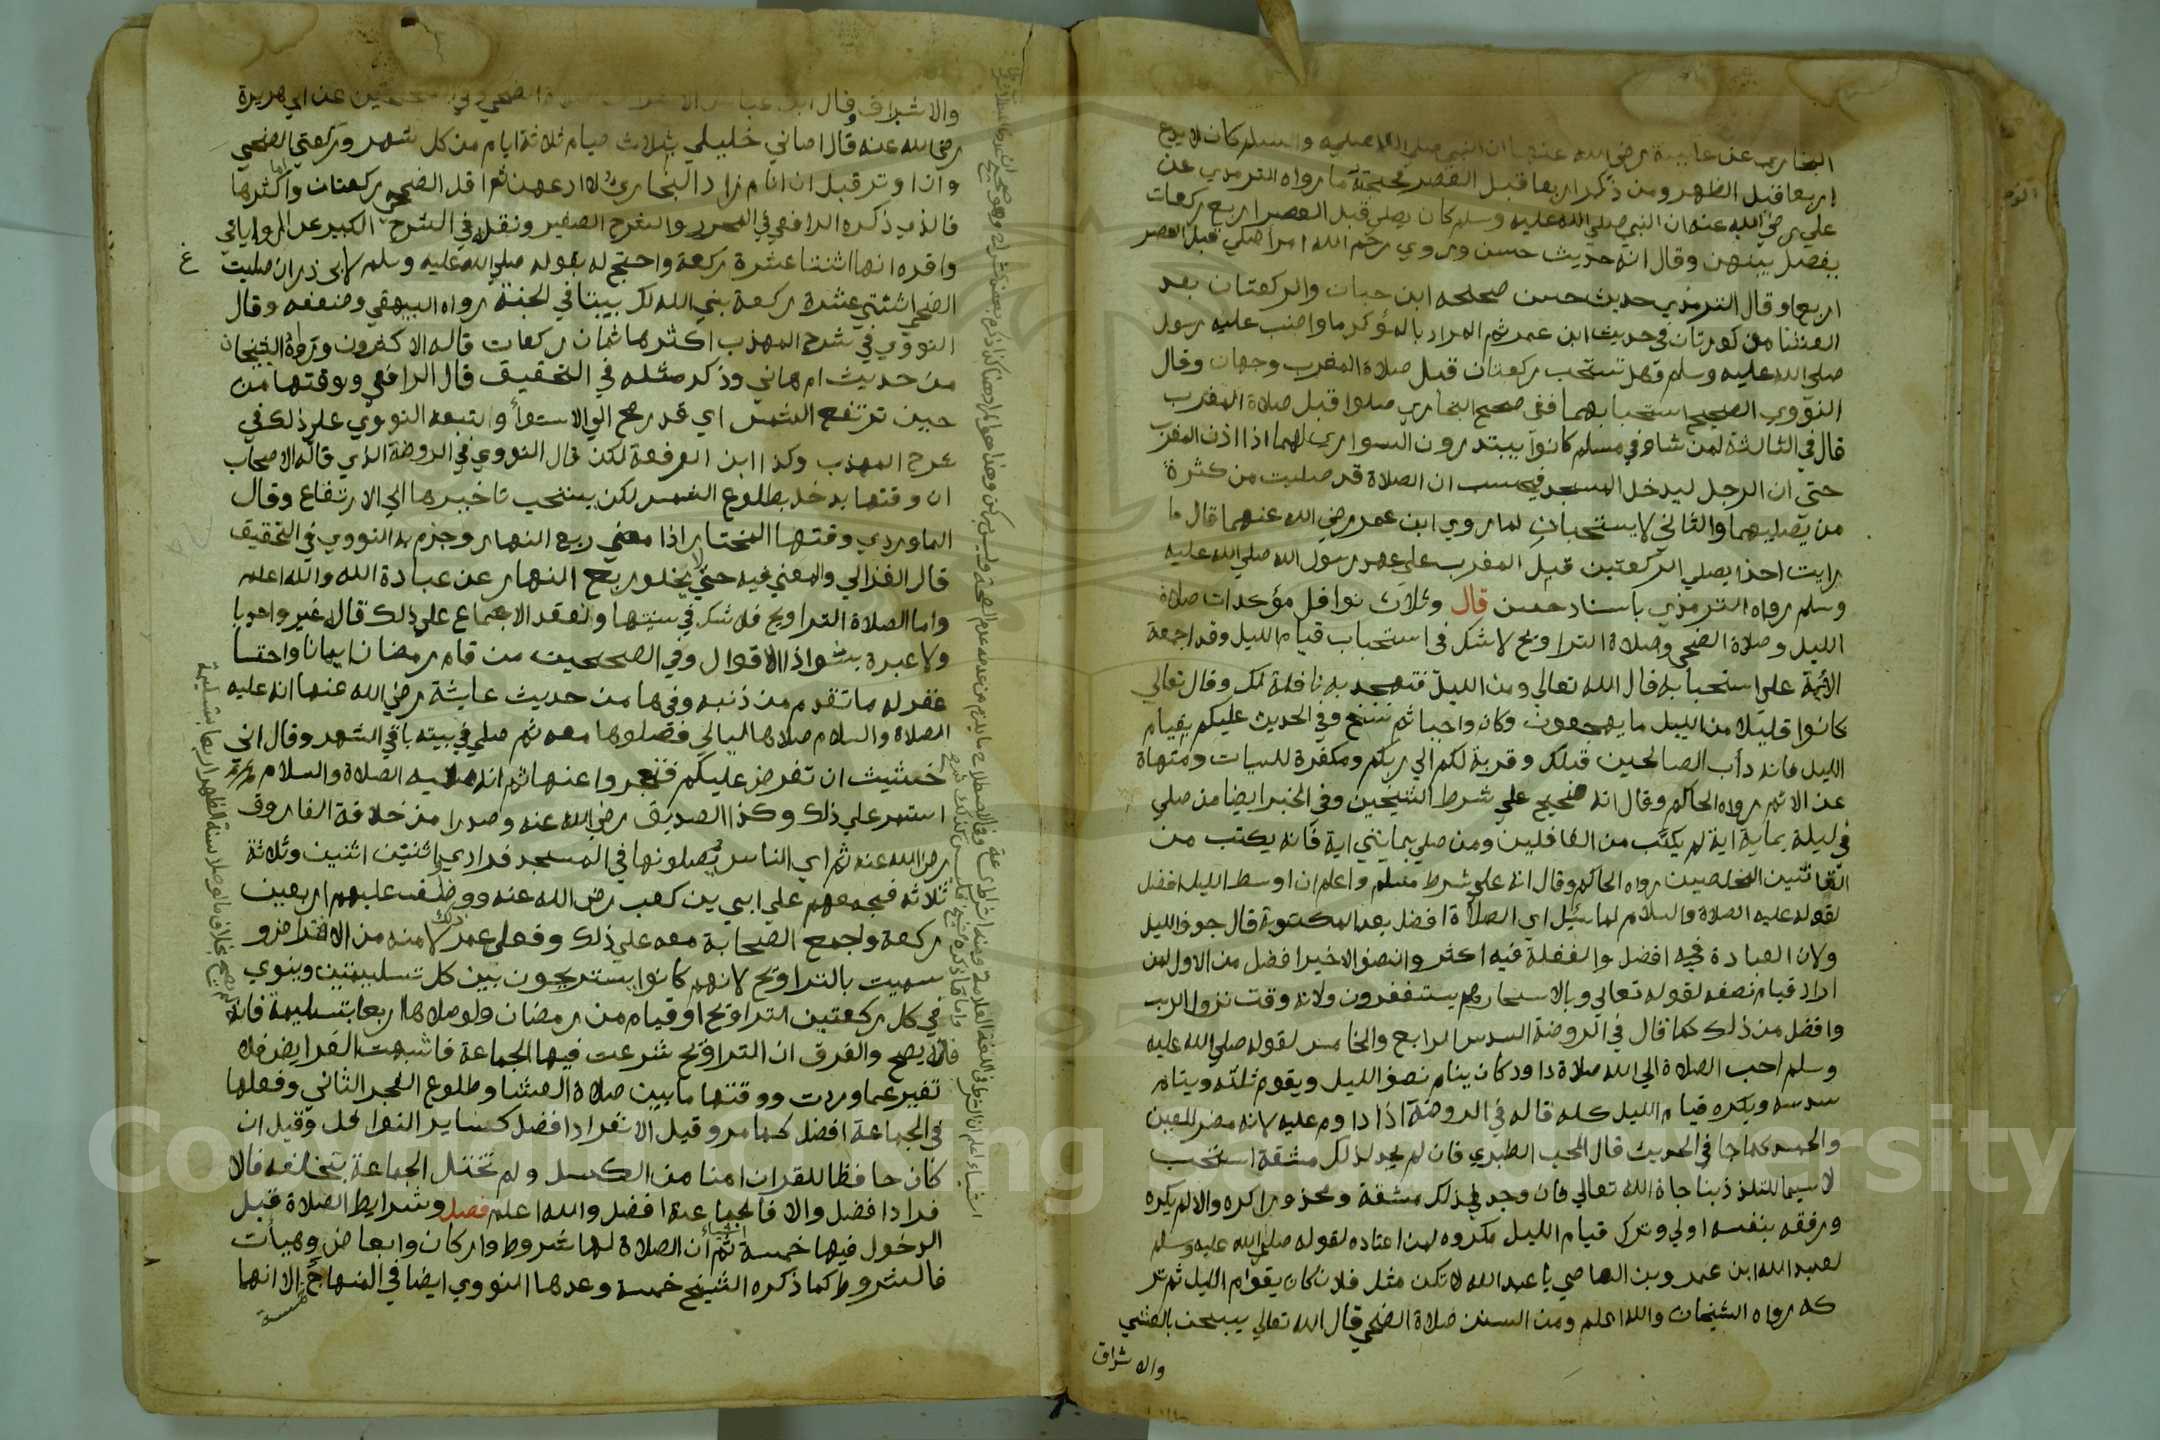 البخاري عن عايشة رضي الله عنها ان النبي صلي الله عليه والسلم كان لا يدع
اربعا قبل الظهر ومن ذكر اربعا قبل العصر فحجته ما رواه الترمذي عن
علي رضي الله عنه ان النبي صلي الله عليه وسلم كان يصلي قبل العصر اربع ركعات
يفصل بينهن وقال انه حديث حسن وروي رحم الله امرأ صلي قبل العصر
اربعا وقال الترمذي حديث حسن صححه ابن حبان والركعتان بعد
العشا مذكورتان في حديث ابن عمر ثم المراد بالمؤكد ما واضب عليه رسول
صلي الله عليه وسلم وهل تستحب ركعتان قبل صلاة المغرب وجهان وقال
النووي الصحيح استحبابهما ففي صحيح البخاري صلوا قبل صلاة المغرب
قال في الثالثة لمن شاء وفي مسلم كانوا يبتدرون السواري لهما اذا اذن المغرب
حتي ان الرجل ليدخل المسجد فيحسب ان الصلاة قد صليت من كثرة
من يصليهما والثاني لا يستحبان لما روي ابن عمر رضي الله عنهما قال ما
رايت احدا يصلي الركعتين قبل المغرب علي عهد رسول الله صلي الله عليه
وسلم رواه الترمذي باسناد حسن قال وثلاث نوافل مؤكدات صلاة
الليل وصلاة الضحي وصلاة التراويح لا شك في استحباب قيام الليل وقد اجمعة
الائمة علي استحبابه قال الله تعالي ومن الليل فتهجد به نافلة لك وقال تعالي
كانوا قليلا من الليل ما يهجعون وكان واجبا ثم نسخ وفي الحديث عليكم بقيام
الليل فانه دأب الصالحين قبلكم وقربة لكم الي ربكم ومكفرة للسيات ومنهاة
عن الاثم رواه الحاكم وقال انه صحيح علي شرط الشيخين وفي الخبر ايضا من صلي
في ليلة بماية اية لم يكتب من الغافلين ومن صلي بمايتي اية فانه يكتب من
القانتين المخلصين رواه الحاكم وقال انه علي شرط مسلم واعلم ان اوسط الليل افضل
لقوله عليه الصلاة والسلام لما سئل اي الصلاة افضل بعد المكتوبة قال جوف الليل
ولان العبادة فيه افضل والغفلة فيه اكثر والنصف الاخير افضل من الاول لمن
اراد قيام نصفه لقوله تعالي وبالاسحار هم يستغفرون ولانه وقت نزول الرب
وافضل من ذلك كما قال في الروضة السدس الرابع والخامس لقوله صلي الله عليه
وسلم احب الصلاة الي الله صلاة داود كان ينام نصف الليل ويقوم ثلثه وينام
سدسه ويكره قيام الليل كله قاله في الروضة اذا داوم عليه لانه مضر للعين
والجسد كما جا في الحديث قال المحب الطبري فان لم يجد لذلك مشقة استحب
لا سيما المتلذذ بمناجاة الله تعالي فان وجد لذلك مشقة ومحذورا كره والا لم يكره
ورفقه بنفسه اولي وترك قيام الليل مكروه لمن اعتاده لقوله صلي الله عليه وسلم
لعبد الله ابن عمرو بن العاصي يا عبد الله لا تكن مثل فلان كان يقوم الليل ثم تر
كه رواه الشيخان والله اعلم ومن السنن صلاة الضحي قال الله تعالي يسبحن بالعشي
والاشراق
والاشراق وقال ابن عباس عن ابي هريرة
رضي الله عنه قال اوصاني خليلي بثلاث صيام ثلاثة ايام من كل شهر وركعتي الضحي
وان اوتر قبل ان انام زاد البخاري لا ادعهن ثم اقل الضحي ركعتان واكثرها
فالذي ذكره الرافعي في المحرر والشرح الصغير ونقله في الشرح الكبير عن الروياني
واقره انها اثنتا عشرة ركعة واحتج له بقوله صلي الله عليه وسلم لابي ذر ان صليت
الضحي اثنتي عشرة ركعة بني الله لك بيتا في الجنة رواه البيهقي وضعفه وقال
النووي في شرح المهذب اكثرها ثمان ركعات قاله الاكثرون ورواه الشيخان
من حديث ام هاني وذكر مثله في التحقيق قال الرافعي ووقتها من
حين ترتفع الشمس اي قدر رمح الي الاستوأ واتبعه النووي علي ذلك في
شرح المهذب وكذا ابن الرفعة لكن قال النووي في الروضة الذي قاله الاصحاب
ان وقتها يدخل بطلوع الشمس لكن يستحب تاخيرها الي الارتفاع وقال
الماوردي وقتها المختار اذا مضي ربع النهار وجزم به النووي في التحقيق
قال الغزالي والمعني فيه حتي لا يخلو ربع النهار عن عبادة الله والله اعلم
واما الصلاة التراويح فلا شك في سنيتها وانعقد الاجماع علي ذلك قال غير واحد
ولا عبرة بشواذ الاقوال وفي الصحيحين من قام رمضان ايمانا واحتسا
غفر له ما تقدم من ذنبه وفيها من حديث عايشة رضي الله عنها انه عليه
الصلاة والسلام صلاها ليالي فصلوها معه ثم صلي في بيته باقي الشهر وقال اني
خشيت ان تفرض عليكم فتعجزوا عنها ثم انه عليه الصلاة والسلام
استمر علي ذلك وكذا الصديق رضي الله عنه وصدرا من خلافة الفاروق
رضي الله عنه ثم راي الناس يصلونها في المسجد فرادي واثنين اثنين وثلاثة
ثلاثه فجمعهم علي ابي بن كعب رضي الله عنه ووظف عليهم اربعين
ركعة واجمع الصحابة معه علي ذلك وفعل عمر ذلك لامنه من الافتراض و
سميت بالتراويح لانهم كانوا يستريحون بين كل تسليمتين وينوي
في كل ركعتين التراويح او قيام من رمضان ولو صلاها اربعا بتسليمة فانه
لا يصح والفرق ان التراويح شرعت فيها الجماعة فاشبهت الفرايض فلا
تغير عما وردت ووقتها ما بين صلاة العشا وطلوع الفجر الثاني وفعلها
في الجماعة افضل كما مر وقيل الانفراد افضل كساير النوافل وقيل ان
كان حافظا للقران امنا من الكسل ولم تختل الجماعة بتخلفه فالا
فرادا افضل والا فالجماعة افضل والله اعلم فصل وشرايط الصلاة قبل
الدخول فيها خمسة اشياء ثم ان الصلاة لها شروط واركان وابعاض وهيأت
فالشروط كما ذكره الشيخ خمسة وعدها النووي ايضا في المنهاج خمسة الا انها